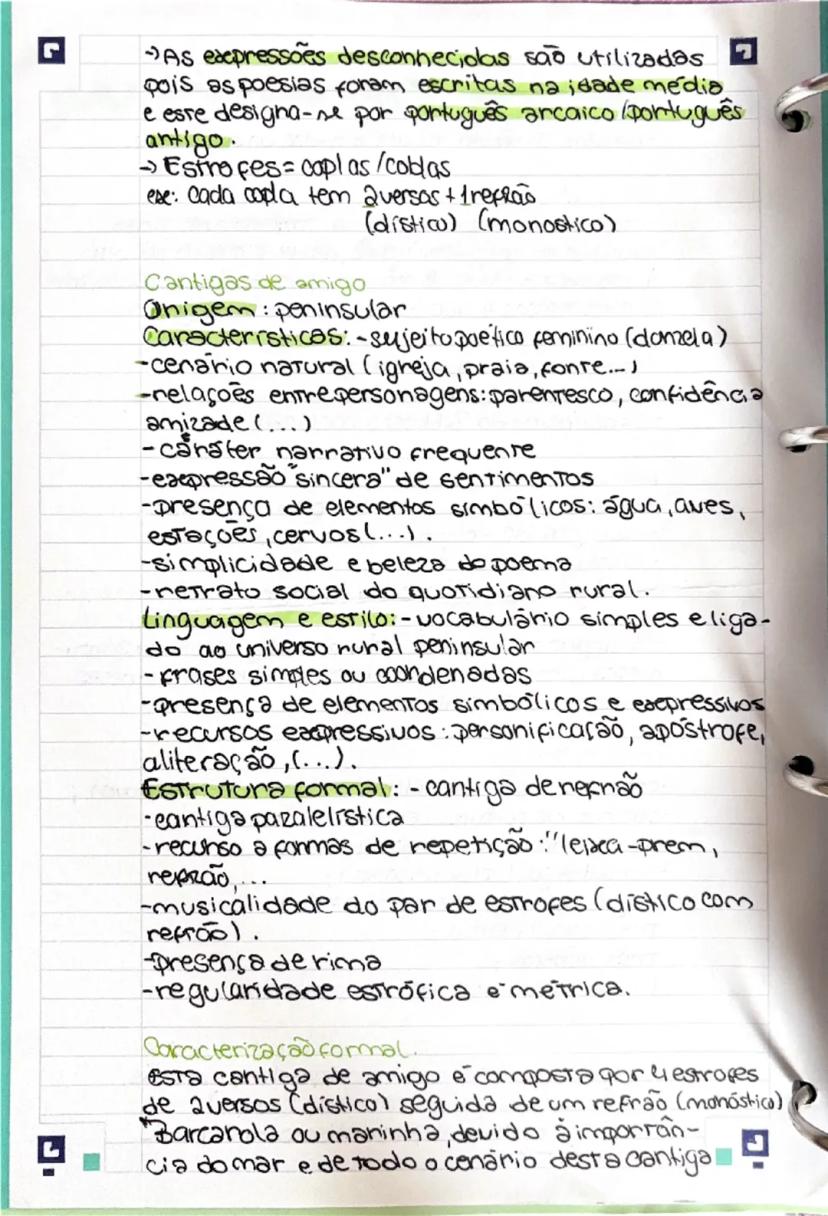 →As expressões desconhecidas são utilizadas
pois as poesias foram escritas na idade média
e este designa-se por português arcaico/português
antigo.
→ Estrofes = coplas/coblas
ex: Cada copla tem 2 versos + 1 refrão
(dístico) (monostico)
Cantigas de amigo
Origem: peninsular
Características: - sujeito poético feminino (donzela)
-cenário natural (igreja, praia, fonte...)
-relações entre personagens: parentesco, confidência
amizade (...)
- caráter narrativo frequente
-expressão "sincera" de sentimentos
-presença de elementos simbólicos: água, aves,
estações, cervos (...).
-simplicidade e beleza do poema
-retrato social do quotidiano rural.
Linguagem e estilo: - vocabulário simples e liga-
do ao universo rural peninsular
- frases simples ou coordenadas
-presença de elementos simbólicos e expressivos
-recursos expressivos: personificação, apóstrofe,
aliteração, (...).
Estrutura formal: - cantiga de refrão
-cantiga paralelística
-recurso a formas de repetição: "leixa-prem,
refrão,...
-musicalidade do par de estrofes (dístico com
refrão).
-presença de rima
-regularidade estrófica e métrica.
Caracterização formal.
Esta cantiga de amigo é composta por 4 estrofes
de 2 versos (dístico) seguida de um refrão (monóstico)
Barcarola ou marinha, devido à importân-
cia do mar e de todo o cenário desta cantiga